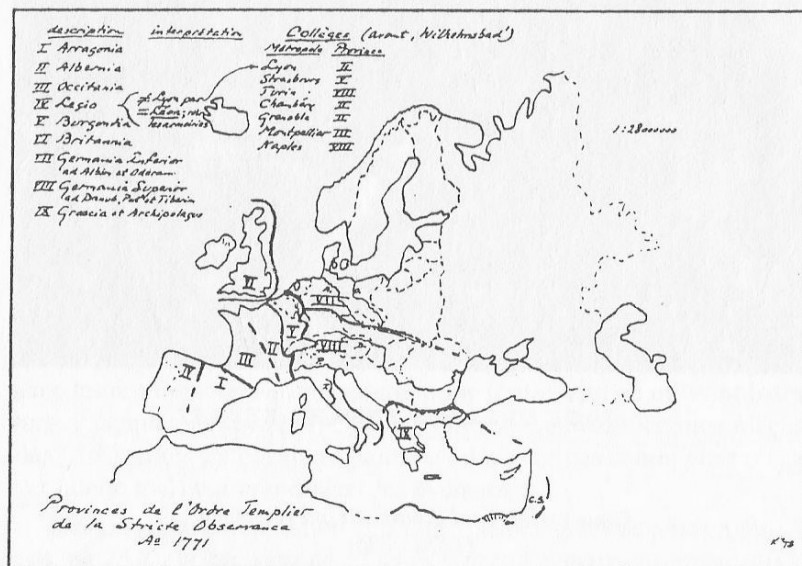 description
I Arragonia
II Albernia
III Occitania
IV Legio
V Burgondia
VI Britannia
VII Germania Inferior
ad Albin et Oderam
VIII Germania Superior
ad Danub, Pad et Tiberim
IX Graecia et Archipelagus
interprétation
≠ Lyon par
= Léon;
Collèges (avant, Wilhelmsbad')
Métropole Province
Lyon II
Strasbourg V
Turin VIII
Chambéry II
Grenoble II
Montpellier III
Naples VIII
1:28000000
VI
VII
V
II
III
VIII
IV
I
IX
C.S.
Provinces de l'Ordre Templier
de la Stricte Observance
Aº 1771